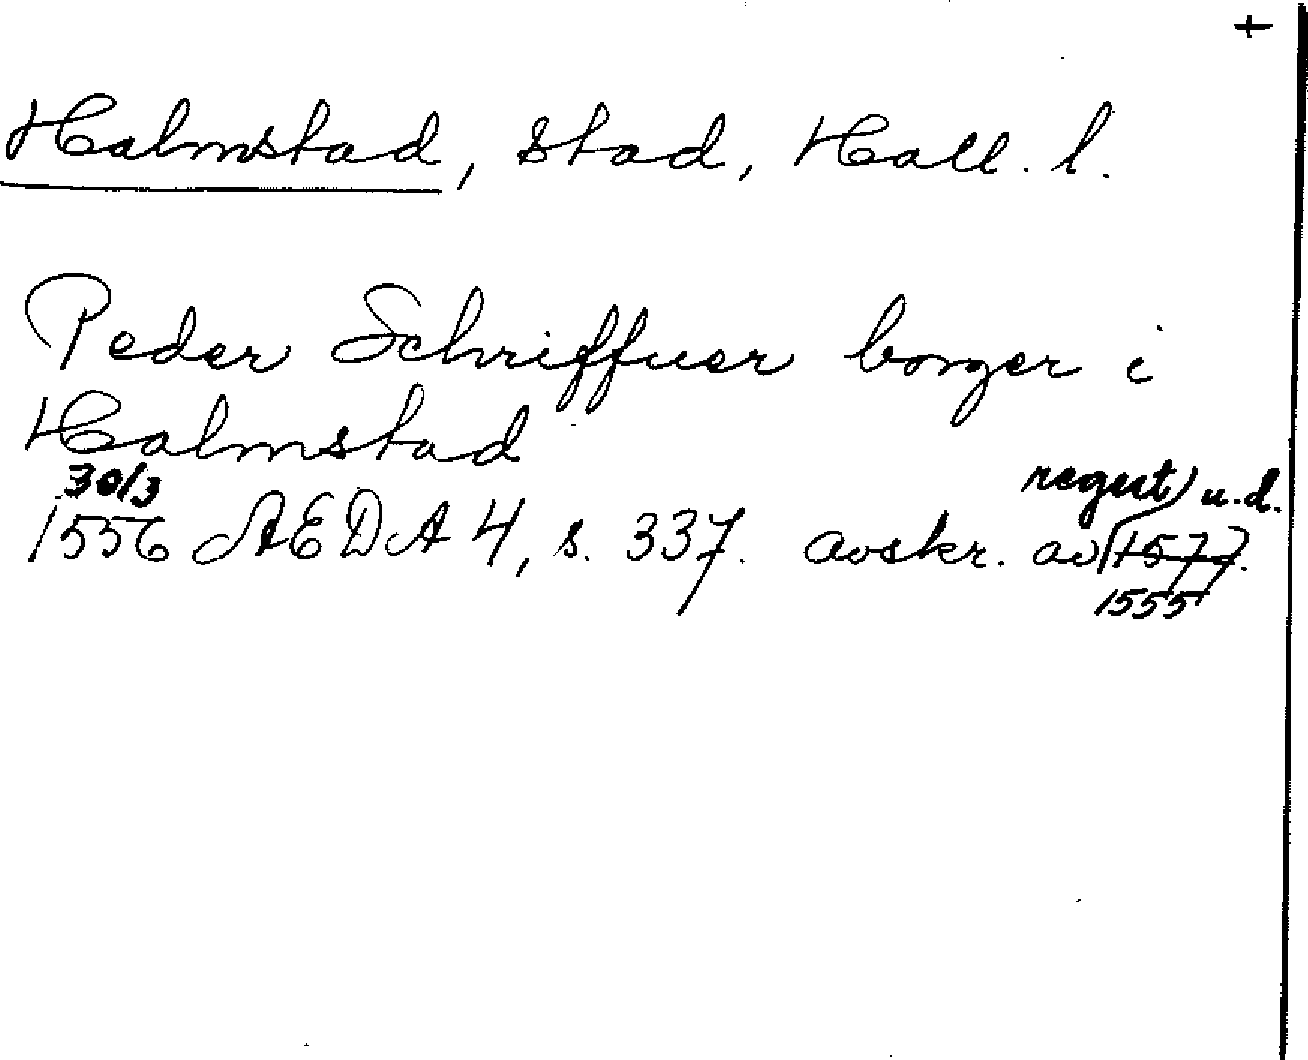 +
Halmstad, stad, Hall. l.
Peder Schriffuer borger i
Halmstad
30/3 regest u.d.
1556 AEDA 4, s. 337. avskr. av 1577.
1555